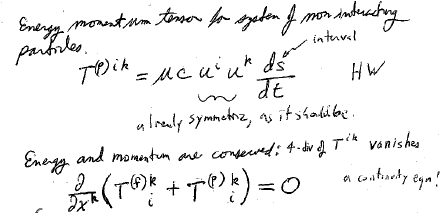 Energy momentum tensor for system of non interacting
particles.
interval
T^{(p) i k} = μ c u^i u^k \frac{ds}{dt} HW
already symmetric, as it should be.
Energy and momentum are conserved: 4-div of T^{ik} vanishes
\frac{∂}{∂x^k} (T^{(f) k}_i + T^{(p) k}_i) = 0 a continuity eqn!